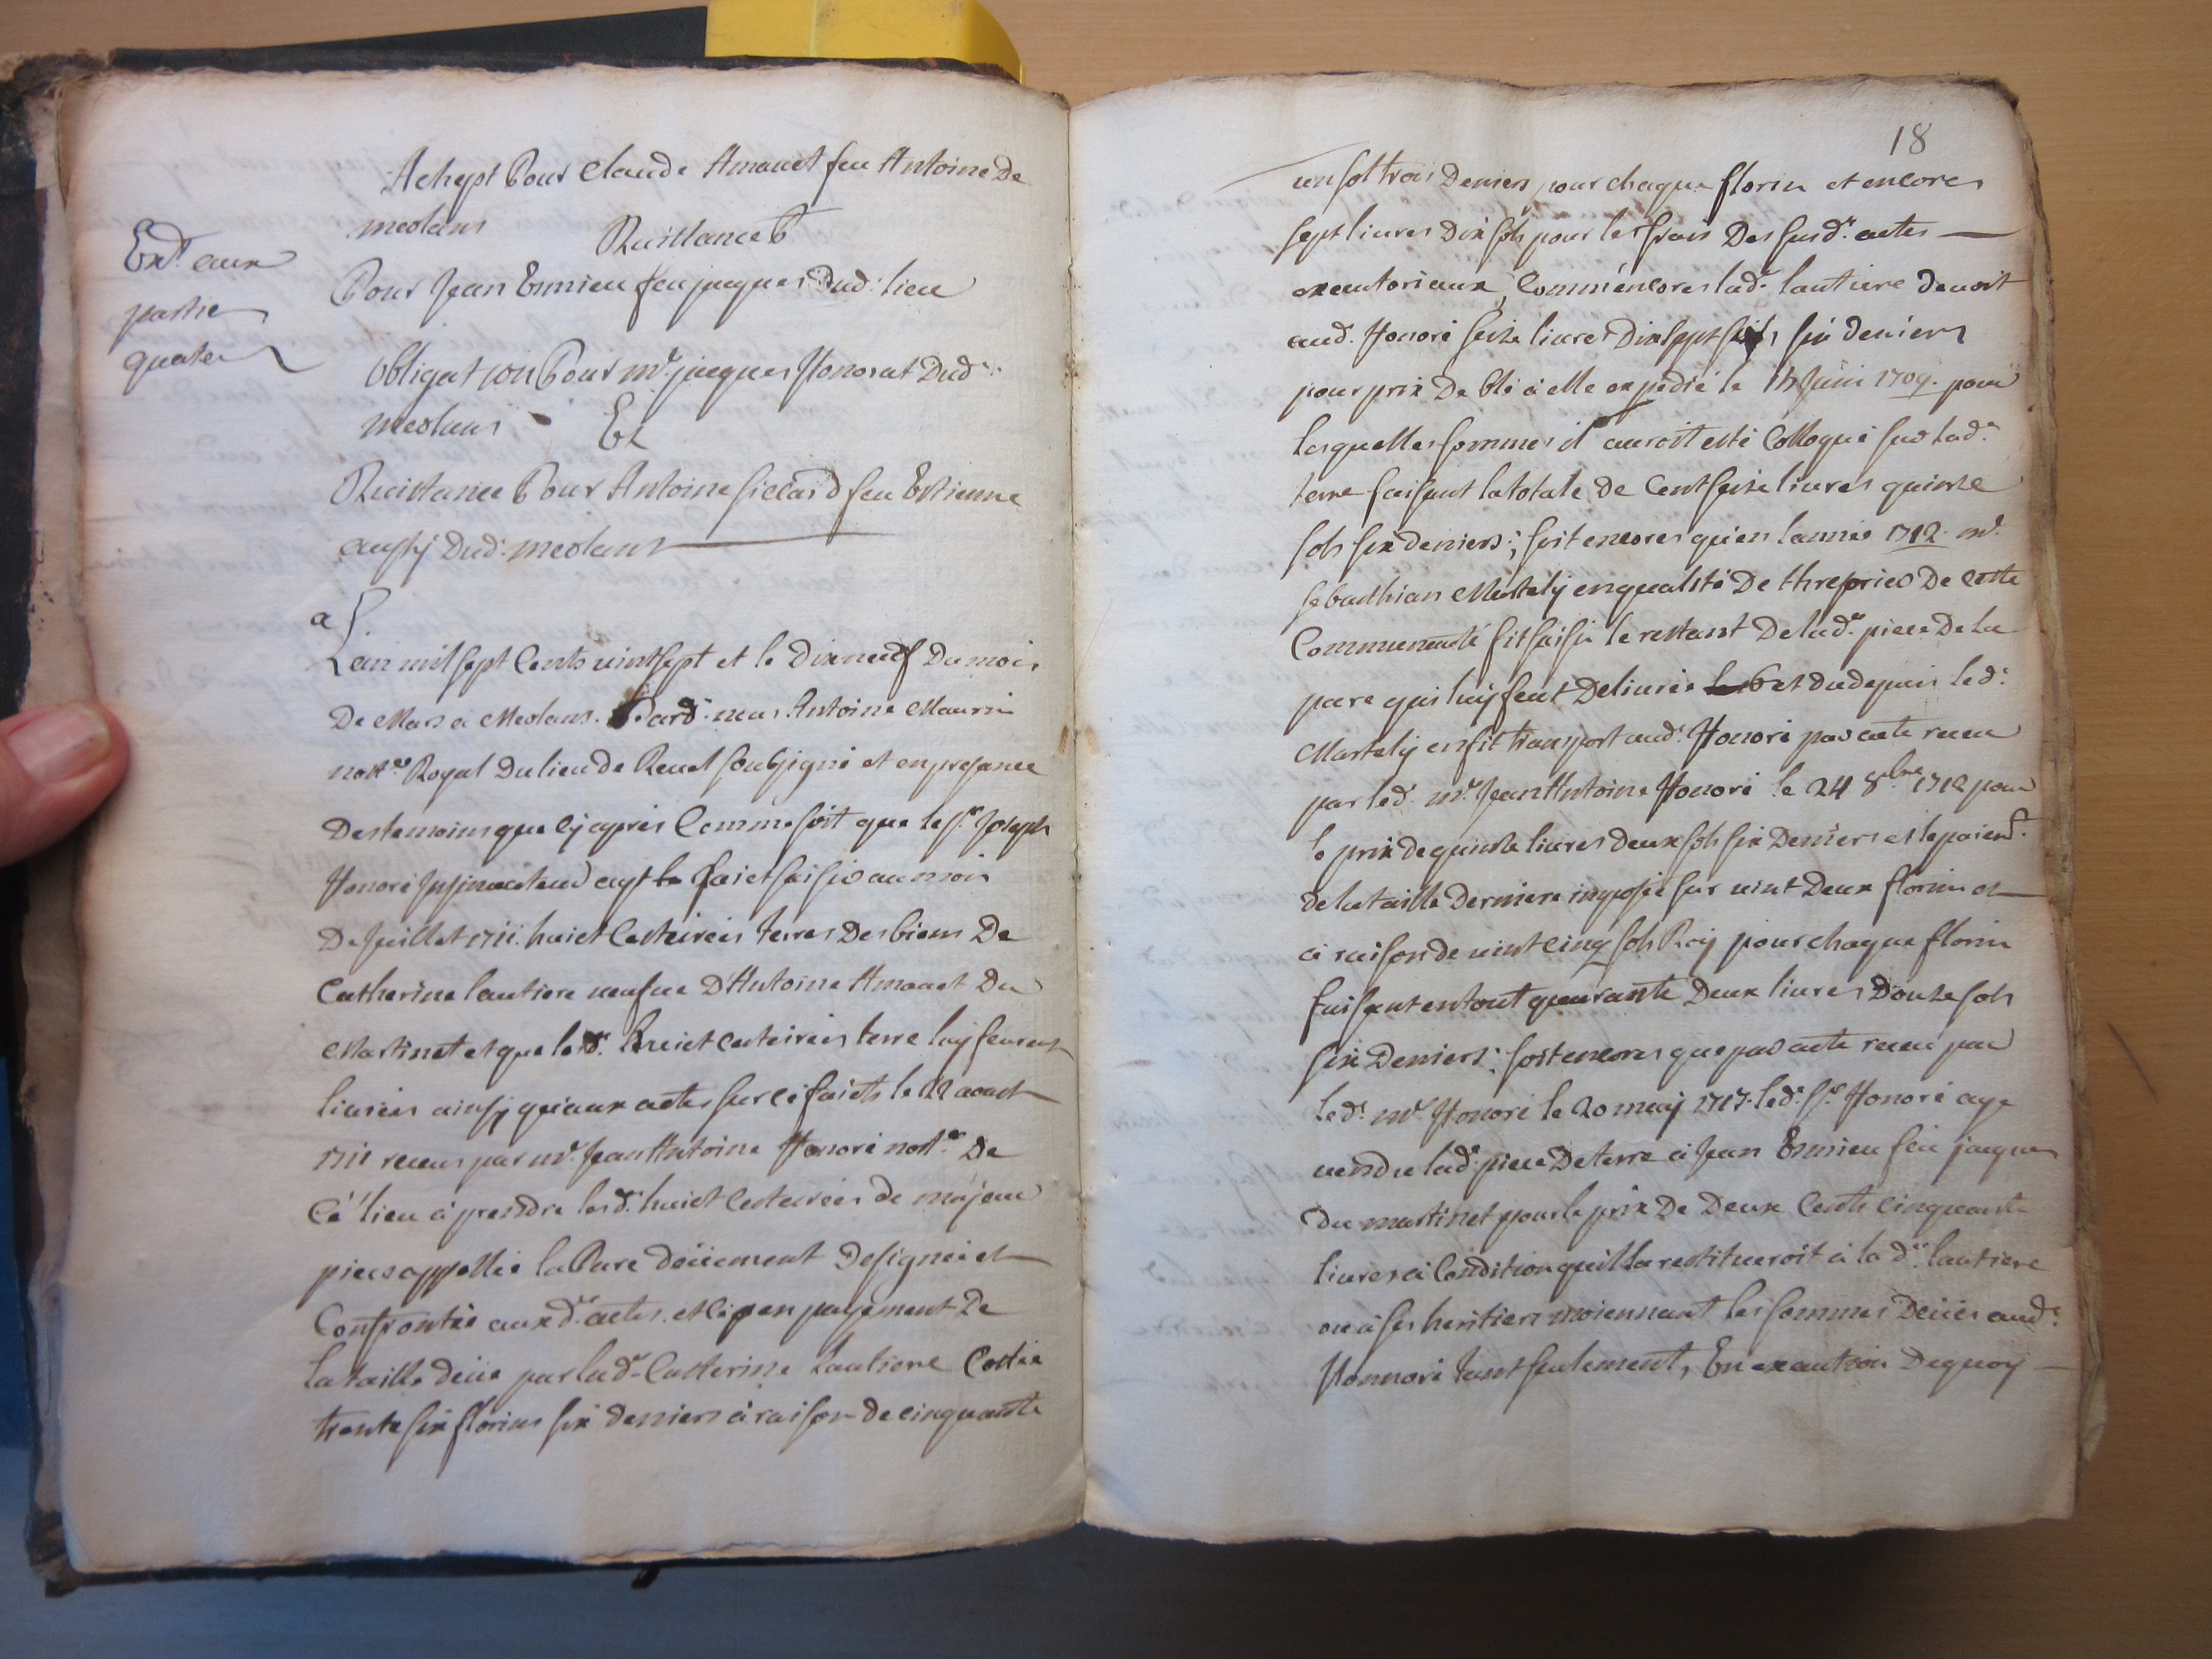 Achept Pour Claude Amauet feu Antoine De
meolans Quittance P
Pour Jean Ermieu feu jacques Dud. lieu
Obligation Pour mr. jacques Honorat Dud.
meolans Et
Quittance Pour Antoine sicard feu Estienne
aussy Dud. meolans
Ext. aux
partie
quater
a
L'an mil sept Cents vintsept et le Dixneuf Du mois
De Mars a Meolans. Pard. nous Antoine Maurin
nottre Royal Du lieu de Reuel soubsigné et en presance
Des temoins que cy apres Comme soit que le sr. Joseph
Honoré aye faict saisir au mois
De Juillet 1711. huict Cesteirées terres Des biens De
Catherine lautiere veufue D'Antoine Amauet Du
Martinet et que lesd. huict Cesteirées terre luy feurent
liurées ainsy qu'aux actes sur ce faicts le 22 aoust
1711 receus par mr. Jean Antoine Honoré nottre. De
Cé lieu à prendre lesd. huict Cesteirées de majeur
piece appellée la Pare deüement Designée et
Confrontée auxd. actes. et ce en payement De
la taille deüe par lad. Catherine Lautiere Cottée
trente six florins six deniers à raison de cinquante
18
un sol trois Deniers pour chaque florin et encores
sept liures Dix sols pour les frais Des susd. actes
executoriaux, Comm'encores lad. lautiere deuoit
aud. Honoré seize liures Dixsept sols six deniers
pour prix De blé à elle expedié le Juin 1709. pour
lesquelles sommes il auroit esté Colloqué sur lad.
terre faisant la totale De Cent seize liures quinze
sols six deniers; soit encores qu'en l'année 1712. mr.
sebasthian Martely en qualité De threzorier De cette
Communauté fit saisir le restant De lad. piece De la
pare qui luy feut Deliurée et du depuis led.
Martely en fit transport aud. Honoré par acte receu
par led. mr. Jean Antoine Honoré le 24 8bre 1712 pour
le prix de quinze liures deux sols six Deniers et le paiemt.
de la taille Derniere imposée sur vint Deux florins et
à raison de vint cinq sols Roy pour chaque florin
faisant en tout quarante Deux liures Douze sols
six Deniers; soit encores que par acte receu par
led. mr. Honoré le 20 may 1717. led. sr. Honoré aye
vendu lad. piece De terre à Jean Ermieu feu jacques
Du martinet pour le prix De Deux Cents cinquante
liures à Condition qu'il la restitueroit à la d. lautiere
ou à ses heritiers moiennant les sommes Deües aud.
Honnoré tant seulement, En execution Dequoy